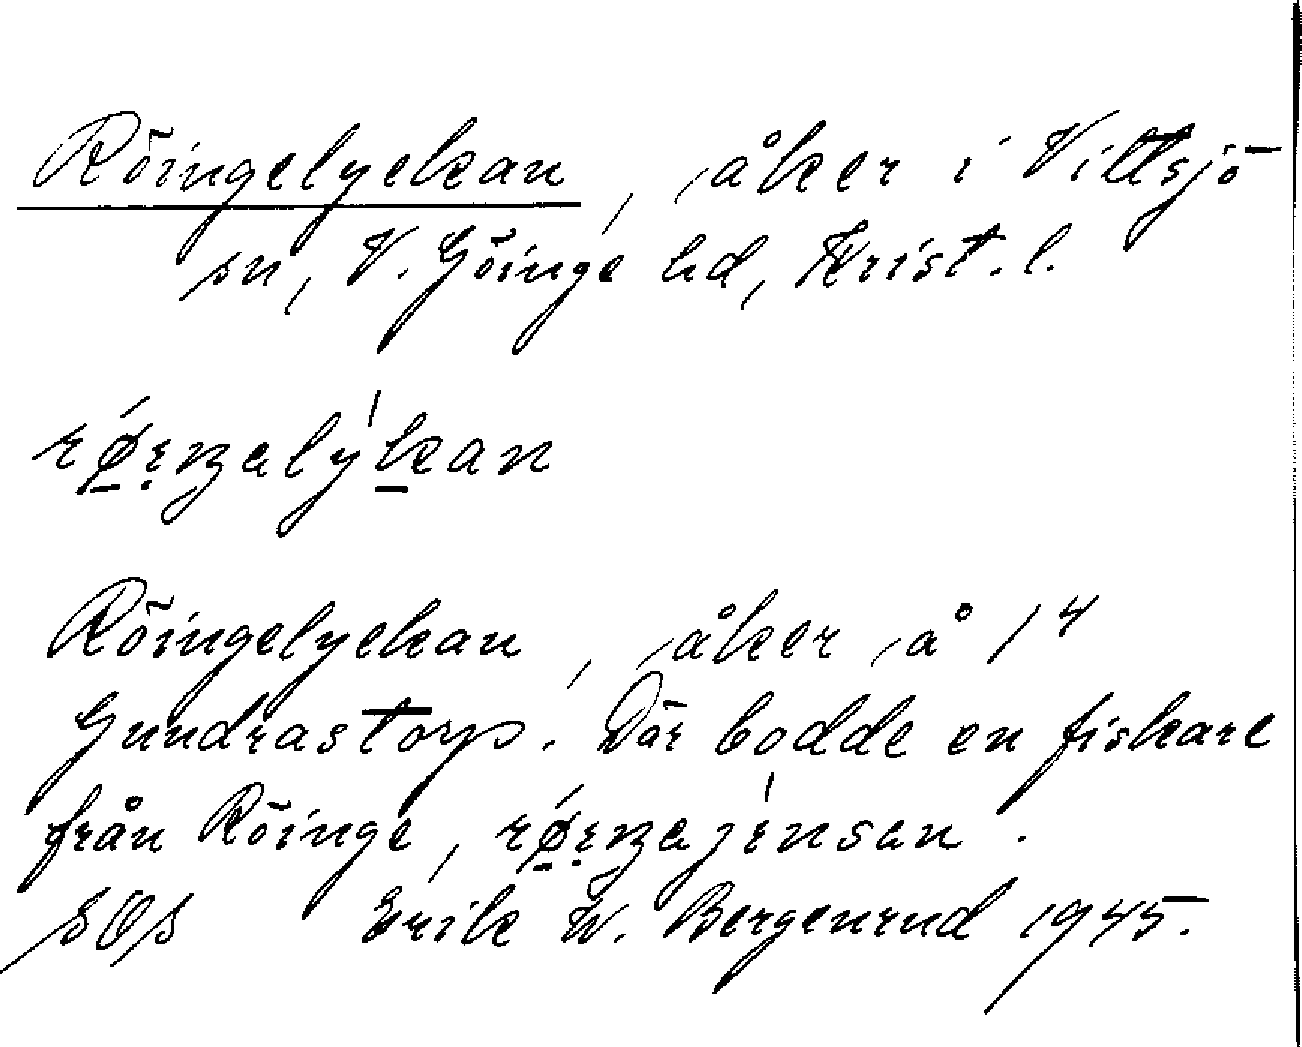 Röingelyckan, åker i Vittsjö
sn, V. Göinge hd, Krist. l.
Röingelyckan, åker å 1⁴
Gundrastorp. Där bodde en fiskare
från Röinge,
SOS Erik W. Bergenrud 1945.